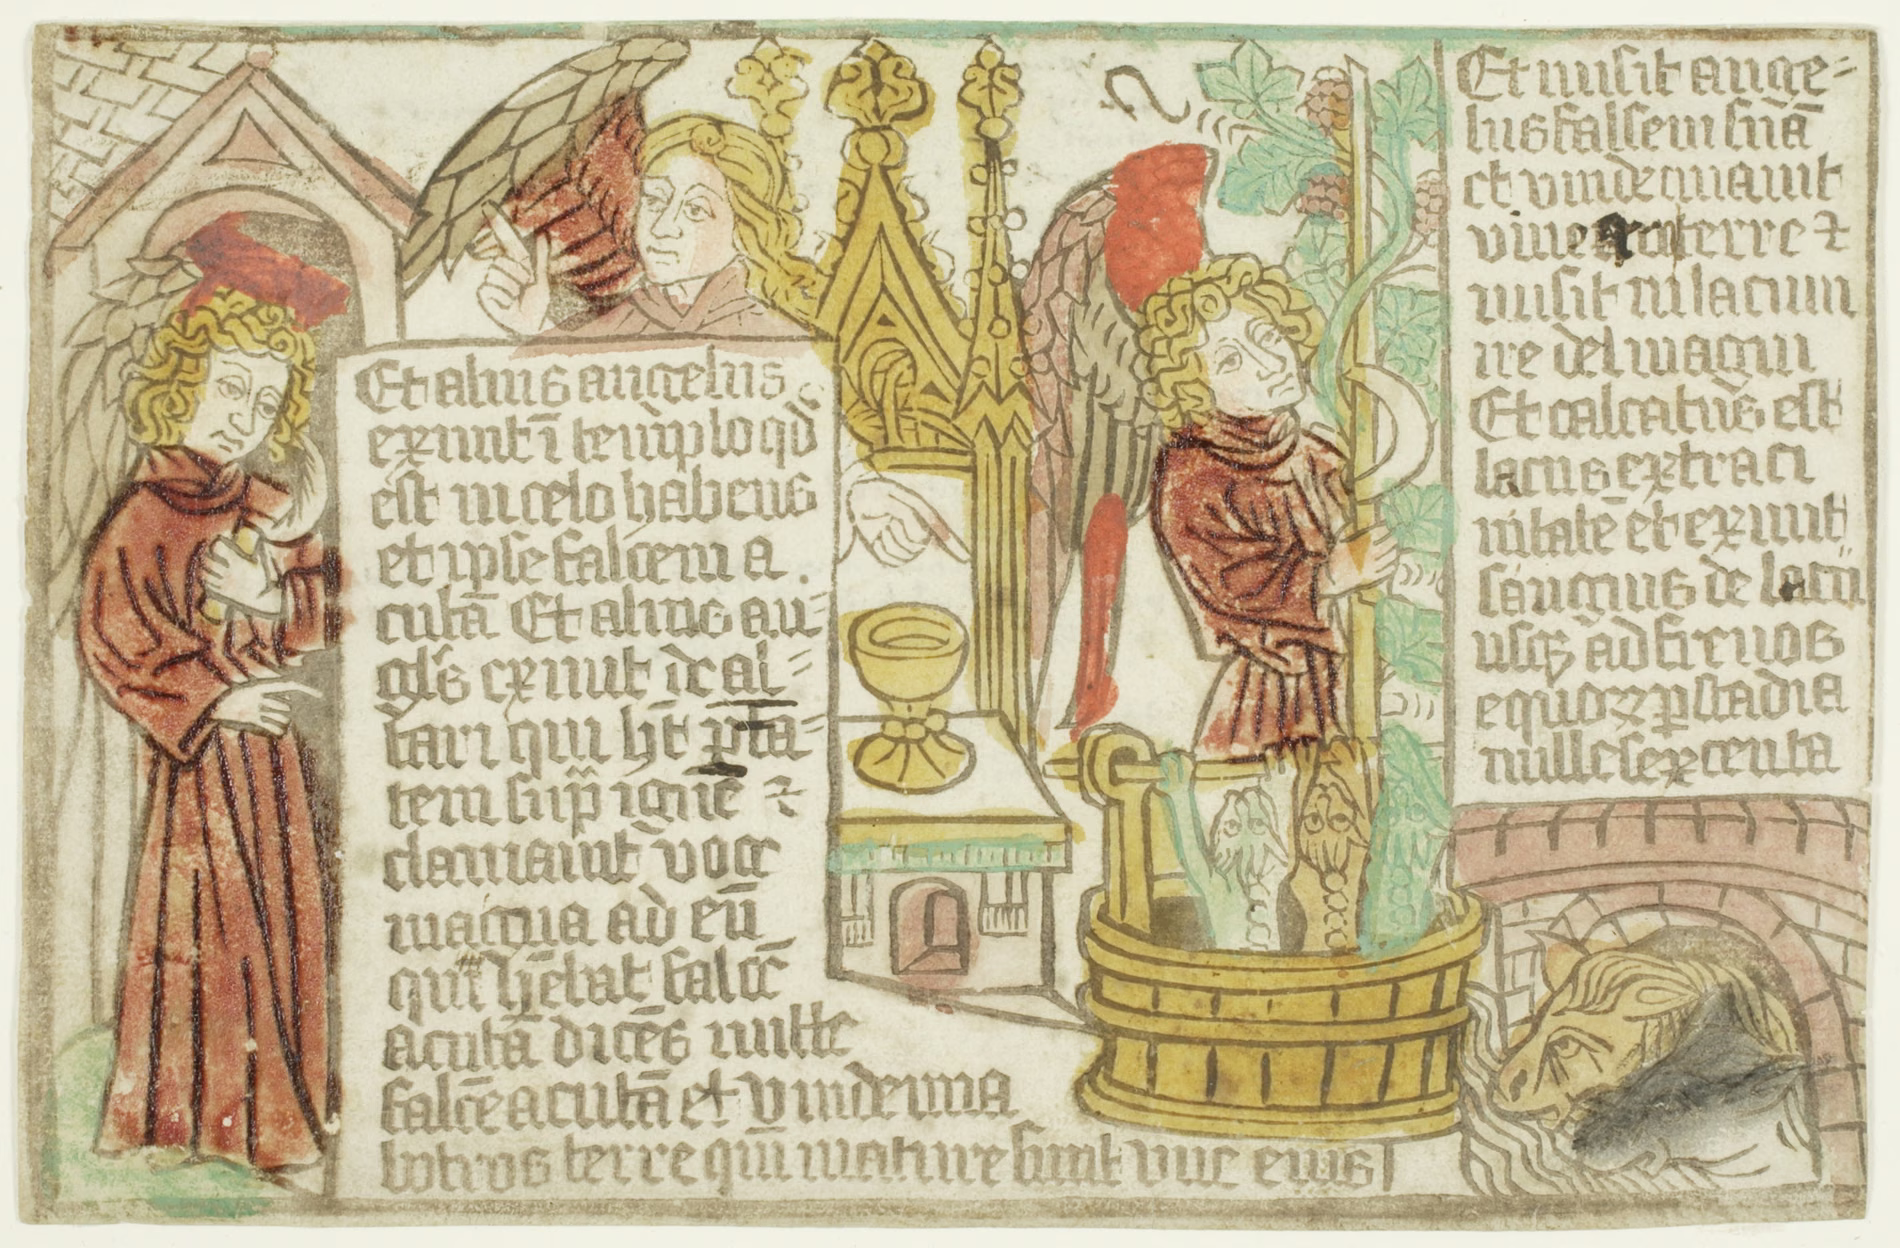 Et alius angelus
exiuit ī templo qd̄
est in celo habens
et ipse falcem a
cutā Et alius an=
gl's exiuit de al=
tari qui h̄t p̄ta=
tem sup̄ ignē ⁊
clamauit voce
magna ad eū
qui h̄ebat falcē
acutā dicēs mitte
falcē acutā et vindemia
botros terre qm̄ mature sunt vue eius
Et misit ange=
lus falcem suā
et vindemiauit
vinea terre ⁊
misit in lacum
ire dei magni
Et calcatus est
lacus extra ci
uitatē et exiuit
sanguis de lacu
usqꝫ ad frenos
equoꝝ ꝑ stadia
mille sexcenta